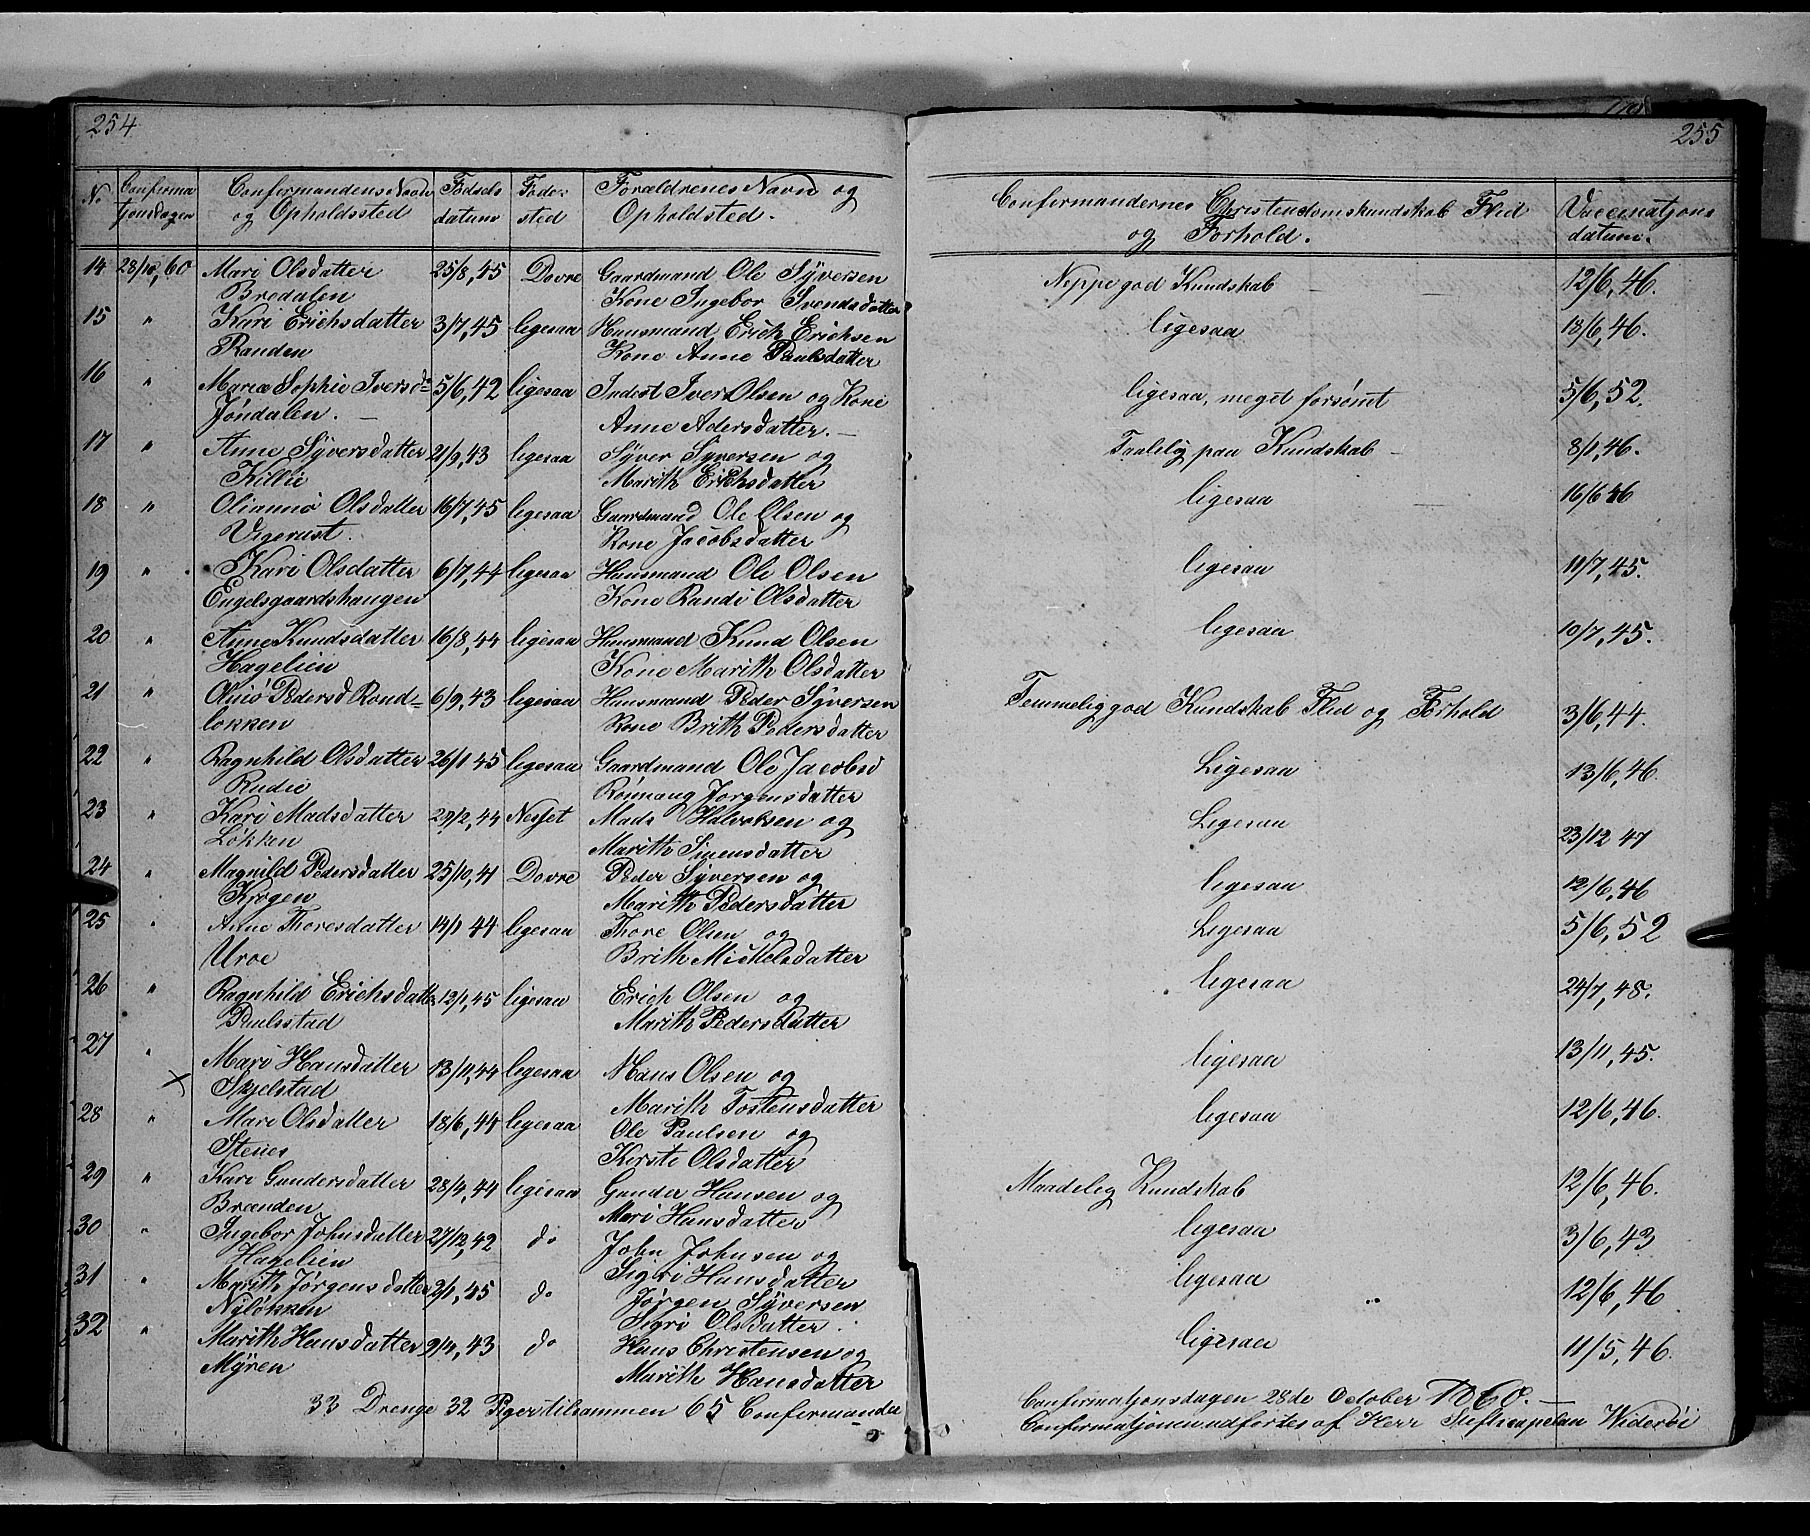 254
No
Confirma
tjonsdagen
Confirmandens Navn
og Opholdssted
Fødsels
datum
Føde-
sted
Forældrenes Navn og
Opholdsted.
14 28/10, 60 Mari Olsdatter 25/8, 45 Dovre Gaardmand Ole Syversen
Bredalen Kone Ingebor Svendsdatter
15 " Kari Erichsdatter 3/7, 45 ligesaa Huusmand Erich Erichsen
Randen Kone Anne Paulsdatter
16 " Maria Sophie Iversd 5/6, 42 ligesaa Inderst Iver Olsen og Kone
Jøndalen. Anne Adersdatter.
17 " Anne Syversdatter 2/9, 43 ligesaa Syver Syversen og
Killie Marith Erichsdatter
18 " Olianne Olsdatter 16/7, 45 ligesaa Gaardmand Ole Olsen og
Vigerust. Kone Jacobsdatter
19 " Kari Olsdatter 6/7, 44 ligesaa Huusmand Ole Olsen
Engelsgaardshaugen Kone Randi Olsdatter
20 " Anne Knudsdatter 16/8, 44 ligesaa Huusmand Knud Olsen
Hagelien Kone Marith Olsdatter
21 " Pedersd Rond- 6/9, 43 ligesaa Huusmand Peder Syversen
løkken Kone Brith Pedersdatter
22 " Ragnhild Olsdatter 26/1 45 ligesaa Gaardmand Ole Jacobsd
Rudie Rønnaug Jørgensdatter
23 " Kari Madsdatter 29/2, 44 Nesset Mads Halvorsen og
Løkken Marith Simensdatter
24 " Magnild Pedersdatter 25/10, 41 Dovre Peder Syversen og
Krogen Marith Pedersdatter
25 " Anne Thoresdatter 14/1 44 ligesaa Thore Olsen og
Uroe Brith Michelsdatter
26 " Ragnhild Erichsdatter 13/1, 45 ligesaa Erich Olsen og
Paulsstad Marith Pedersdatter
27 " Mari Hansdatter 13/11, 44 ligesaa Hans Olsen og
x Skjelstad Marith Tostensdatter
28 " Mari Olsdatter 18/6, 44 ligesaa Ole Paulsen og
Stenes Kirsti Olsdatter
29 " Kari Gundersdatter 28/4, 44 ligesaa Gunder Hansen og
Brænden Mari Hansdatter
30 " Ingebor Johnsdatter 27/12, 42 do John Johnsen og
Hagelien Sigri Hansdatter
31 " Marith Jørgensdatter 2/1, 45 do Jørgen Syversen
Nyløkken Sigri Olsdatter.
32 " Marith Hansdatter 9/4, 43 do Hans Christensen og
Myren Marith Hansdatter
33 Drenge 32 Piger tilsammen 65 Confirmander
255
Confirmandernes Christendomskundskab Flid
og Forhold.
Vaccinatjons
datum.
Neppe god Kundskab 12/6, 46.
ligesaa 18/6, 46.
ligesaa, meget forsømt 5/6, 52.
Taalelig paa Kundskab 8/1, 46.
ligesaa 16/6 46
ligesaa 11/7, 45.
ligesaa 10/7, 45.
Temmelig god Kundskab Flid og Forhold 3/6, 44.
Ligesaa 13/6, 46.
Ligesaa 23/12 47
ligesaa 12/6, 46
Ligesaa 5/6, 52
ligesaa 24/7, 48.
ligesaa 13/11, 45.
ligesaa 12/6, 46.
Maadelig Kundskab 12/6, 46.
ligesaa 3/6, 43
ligesaa 12/6, 46
ligesaa 11/5, 46.
Confirmatjonsdagen 28de October 1860.
Confirmatjonen udførtes af Herr Stiftscapelan Widerøi